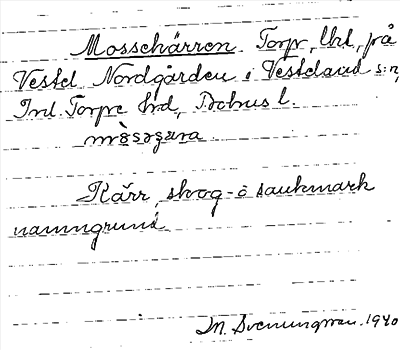 Mossekärren. Torp, Ubl, på
Vestel Nordgården i Vesteland s:n,
Inl. Torpe hrd, Bohus l.
Kärr, skog- o sankmark
namngrund
M. Svenungsson. 1940